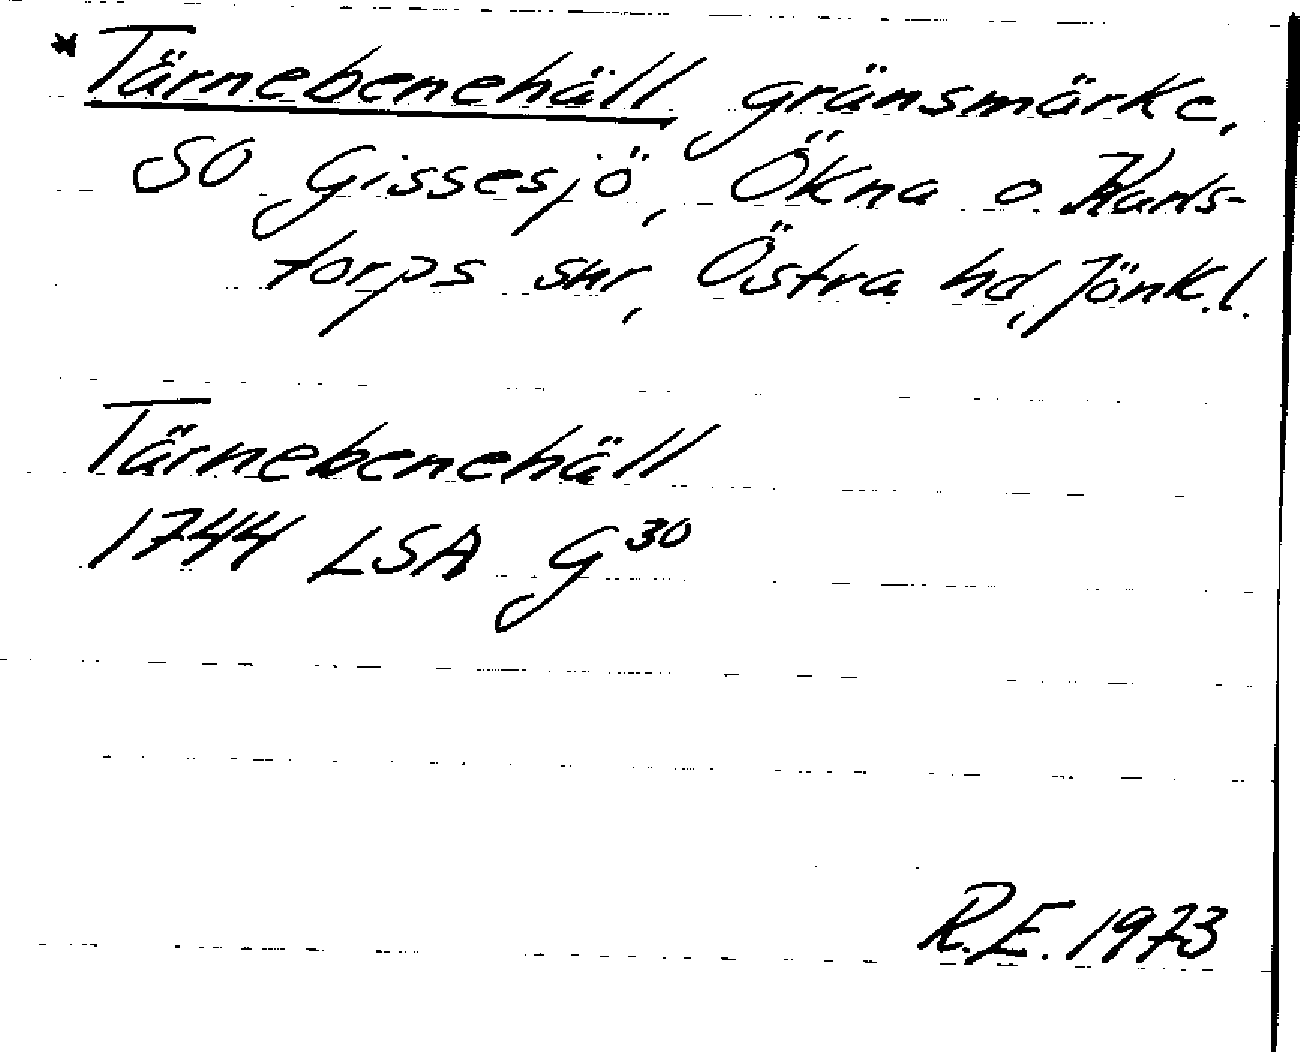 * Tärnebenehäll gränsmärke,
SO Gissesjö, Ökna o. Karls-
torps snr, Östra hd, Jönk.l.
Tärnebenehäll
1744 LSA G30
R.E. 1973